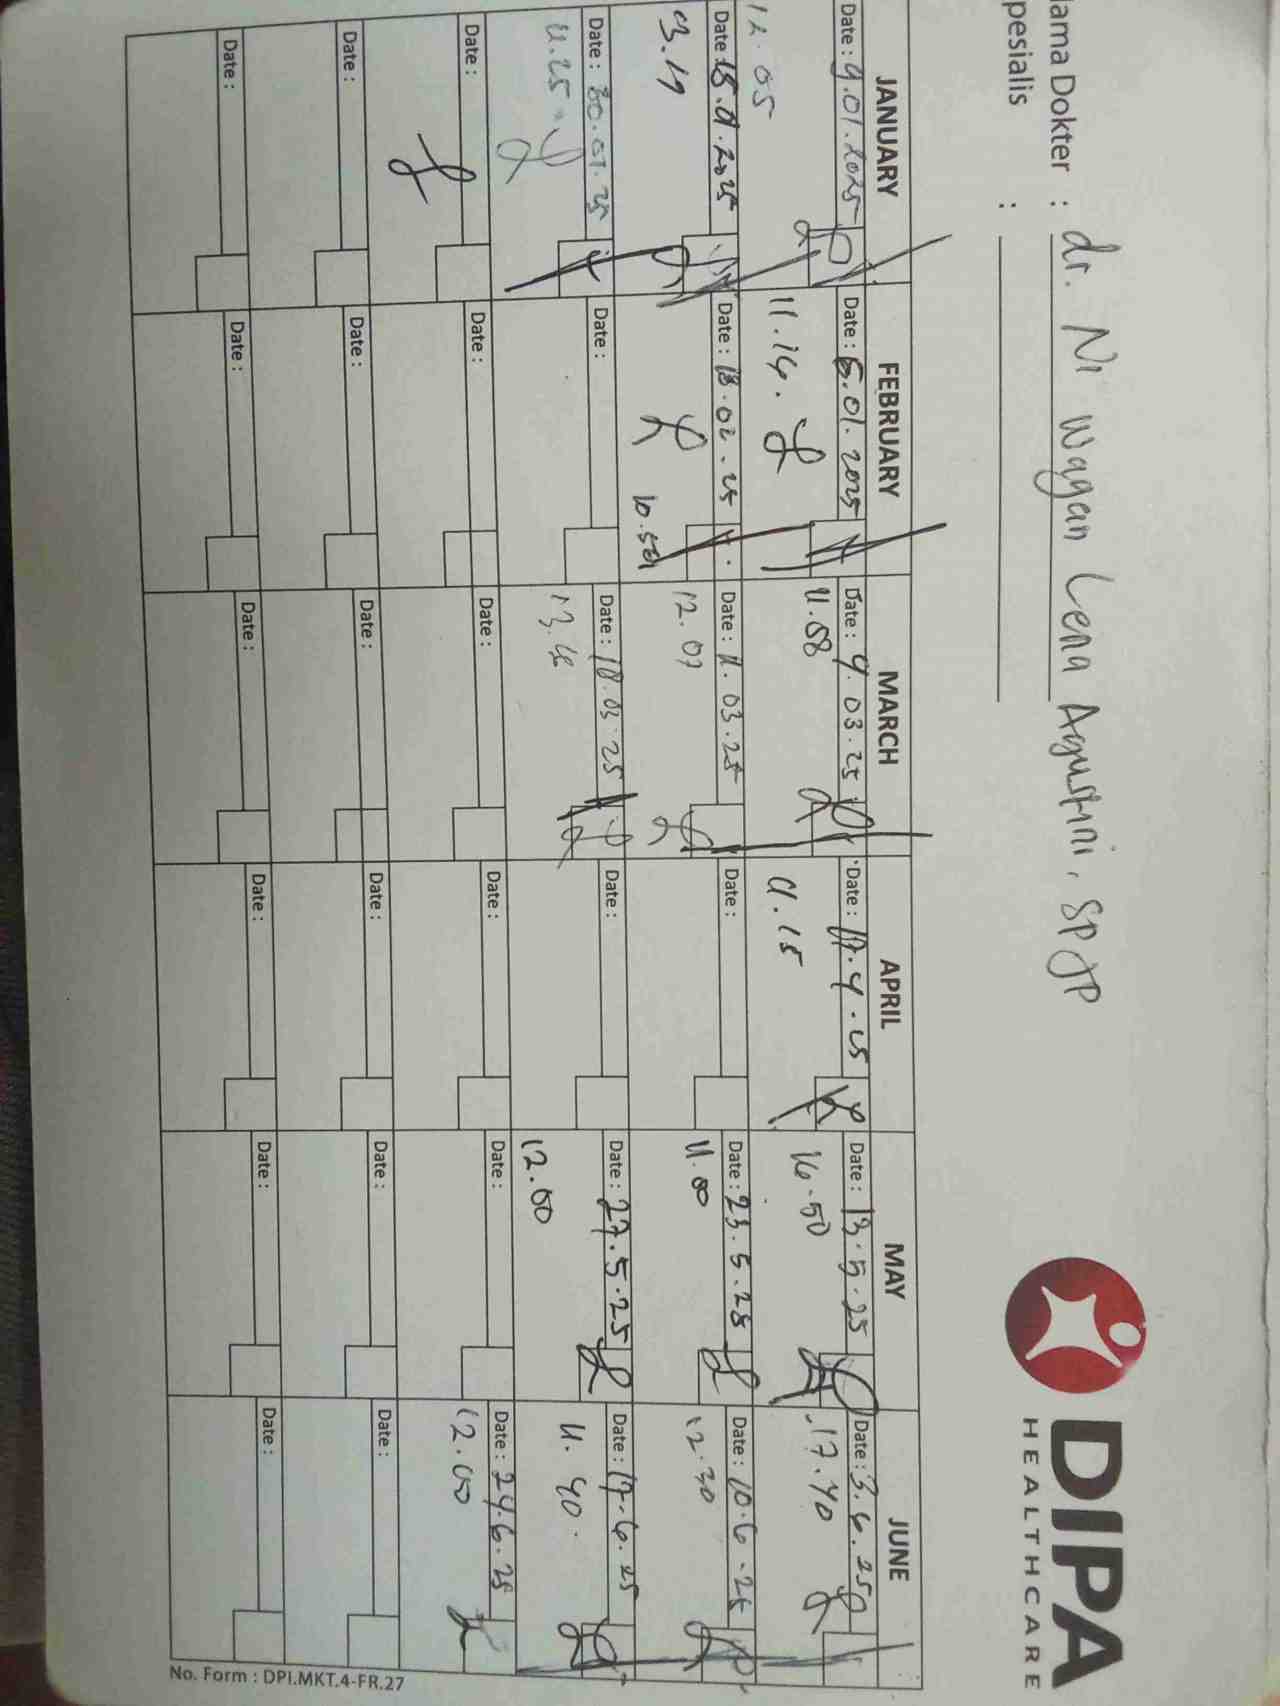 ama Dokter : dr. Ni Wayan Lena Agustini, SP JP
pesialis :
DIPA
HEALTHCARE
JANUARY FEBRUARY MARCH APRIL MAY JUNE
Date : 9.01.2025 Date : 6.01.2025 Date : 4.03.25 Date : 17.4.25 Date : 13.5.25 Date : 3.6.25
12.05 11.14. 11.58 11.15 16.50 17.40
Date : 15.01.2025 Date : 18.02.25 Date : 11.03.25 Date : Date : 23.5.25 Date : 10.6.25
13.19 10.50 12.07 11.00 12.30
Date : 30.01.25 Date : Date : 18.03.25 Date : Date : 27.5.25 Date : 17.6.25
11.25 12.00 11.40.
Date : Date : Date : Date : Date : Date : 24.6.25
12.00
Date : Date : Date : Date : Date : Date :
Date : Date : Date : Date : Date : Date :
No. Form : DPI.MKT.4-FR.27